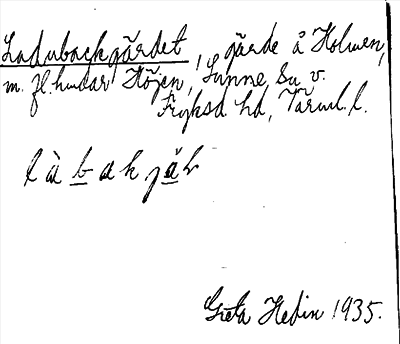 Ladubackgärdet, gärde å Holmen,
m. fl. hmdar Höjen, Sunne, Su v.
Fryksd. hd, Värml. l.
l à b a k j ä r
Greta Hedin 1935.